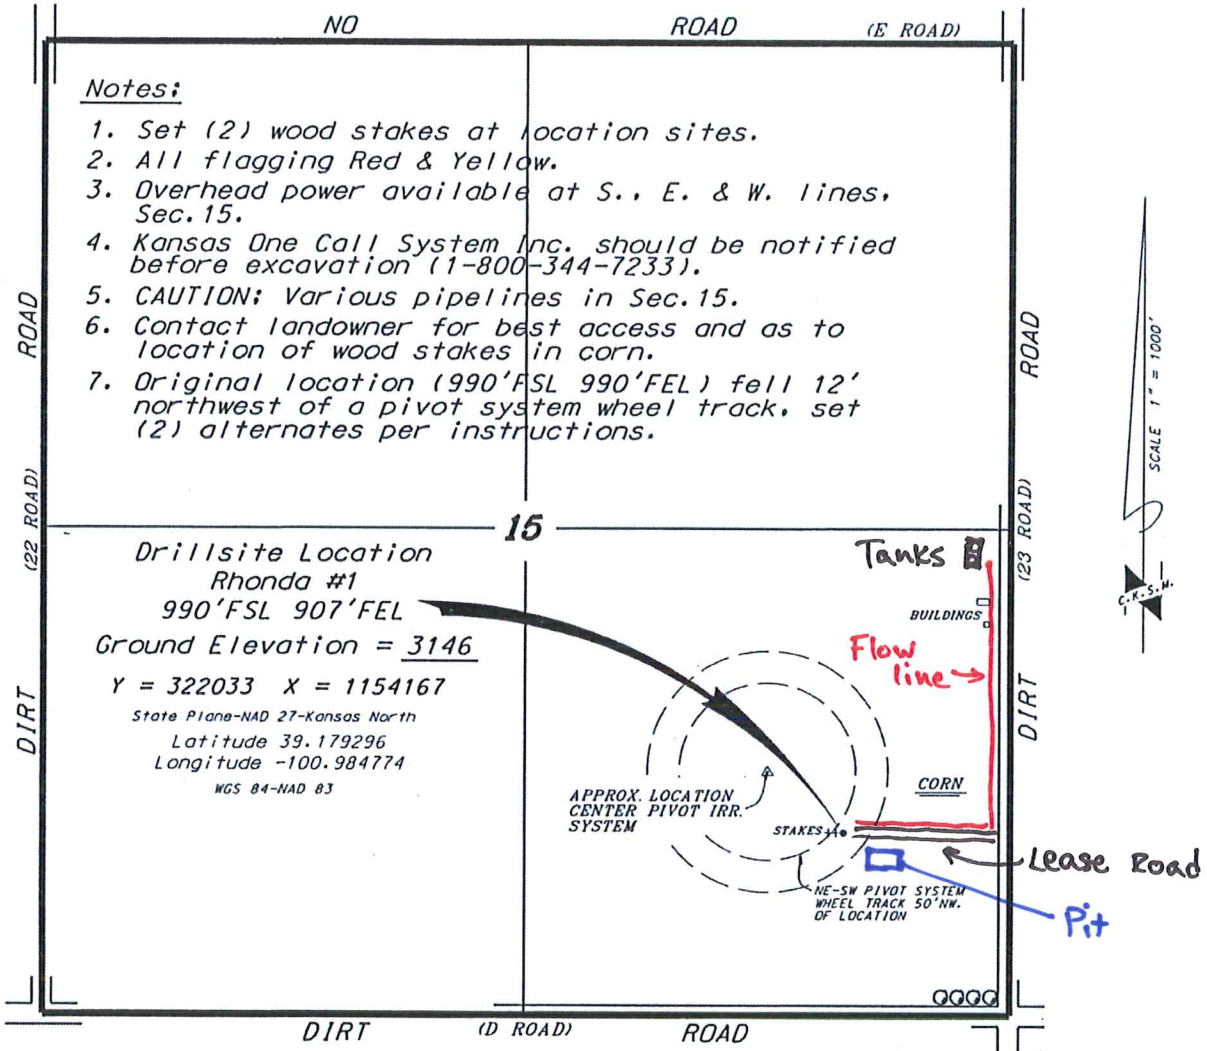 NO ROAD (E ROAD)
Notes:
1. Set (2) wood stakes at location sites.
2. All flagging Red & Yellow.
3. Overhead power available at S., E. & W. lines,
Sec.15.
4. Kansas One Call System Inc. should be notified
before excavation (1-800-344-7233).
5. CAUTION: Various pipelines in Sec.15.
6. Contact landowner for best access and as to
location of wood stakes in corn.
7. Original location (990'FSL 990'FEL) fell 12'
northwest of a pivot system wheel track, set
(2) alternates per instructions.
DIRT (22 ROAD) ROAD
DIRT (23 ROAD) ROAD
SCALE 1" = 1000'
C.K.S.M.
15
Drillsite Location
Rhonda #1
990'FSL 907'FEL
Ground Elevation = 3146
Y = 322033 X = 1154167
State Plane-NAD 27-Kansas North
Latitude 39.179296
Longitude -100.984774
WGS 84-NAD 83
Tanks
BUILDINGS
Flow
line
CORN
APPROX. LOCATION
CENTER PIVOT IRR.
SYSTEM
STAKES
Lease Road
NE-SW PIVOT SYSTEM
WHEEL TRACK 50'NW.
OF LOCATION
Pit
DIRT (D ROAD) ROAD